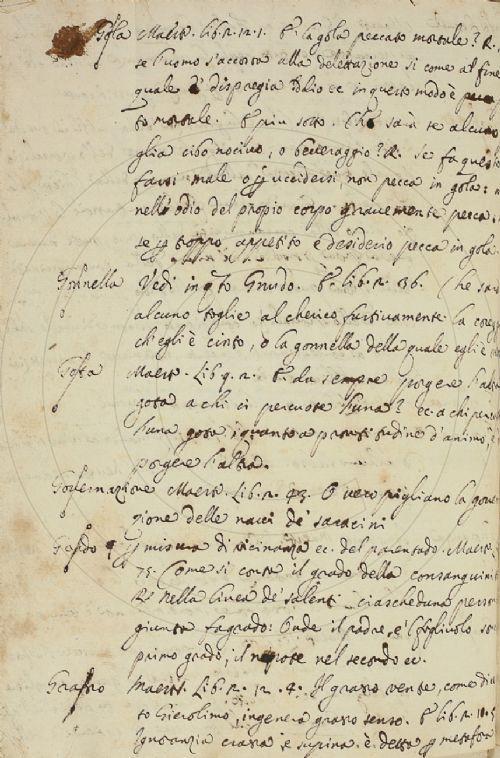 Gola Maestr. Lib. 2. 12. 1. E la gola peccato mortale? R.
se l'uomo s'accosta alla delettazione si come al fine
quale dispregia Iddio ec in questo modo è pecca
to mortale. E piu sotto. Che sarà se alcuno
glia cibo nocivo, o beveraggio? R. se fa questo
farsi male o uccidersi non pecca in gola:
nell'odio del propio corpo gravemente pecca,
se troppo appetito e desiderio pecca in gola.
Gonnella Vedi in Gnudo. E lib. 2. 36. Che sarà
alcuno toglie al cherico furtivamente la
ch'egli è cinto, o la gonnella della quale egli è
Gota Maestr. Lib. 2. E da sempre porgere l'altra
gota a chi ci percuote l'una? ec. a chi
l'una gota, quanto a d'animo,
porgere l'altra.
Governazione Maestr. Lib. 2. 43. O vero pigliano la gover
gione delle navi de' saracini
Grado misura di vicinanza ec. del parentado. Maestr.
75. Come si conta il grado della consanguini
R. nella linea de' salenti ciascheduna perso
giunta fa grado: Onde il padre, e 'l figliuolo
primo grado, il nipote nel secondo ec.
Grasso Maestr. Lib. 2. 12. 4. Il grasso ventre, come di
to Gierolimo, ingenera grasso senso. E lib. 2. 10. 5
Ignoranzia crassa e supina è detta metafora